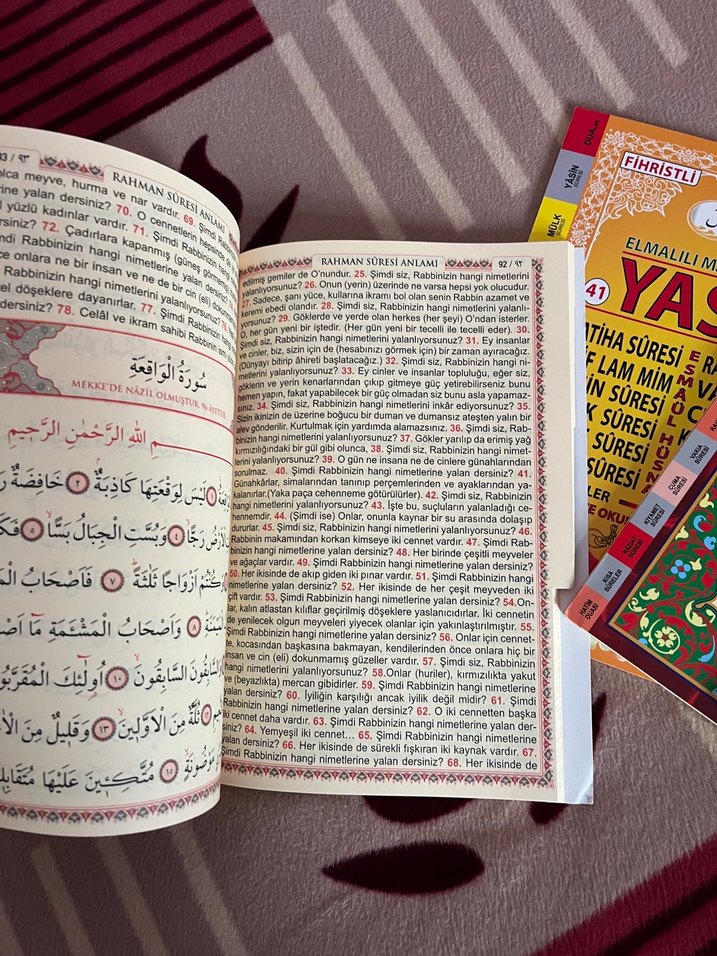 93 / ٩٣ RAHMAN SÛRESİ ANLAMI
olca meyve, hurma ve nar vardır. 69.
rine yalan dersiniz? 70. O cennetlerin hepsinde
l yüzlü kadınlar vardır. 71. Şimdi Rabbinizin hangi
rsiniz? 72. Çadırlara kapanmış (güneş görmemiş
Şimdi Rabbinizin hangi nimetlerine
ce onlara ne bir insan ve ne de bir cin (eli) dokun
Rabbinizin hangi nimetlerini yalanlıyorsunuz?
el döşeklere dayanırlar. 77. Şimdi Rabbinizin
dersiniz? 78. Celâl ve ikram sahibi Rabbinin ismi
سُورَةُ الْوَاقِعَةِ
MEKKE'DE NÂZİL OLMUŞTUR. 96 AYETTİR.
بِسْمِ اللهِ الرَّحْمٰنِ الرَّحِيمِ
لَيْسَ لِوَقْعَتِهَا كَاذِبَةٌ ٢ خَافِضَةٌ
رَجًّا ٤ وَبُسَّتِ الْجِبَالُ بَسًّا ٥
كُنْتُمْ اَزْوَاجًا ثَلٰثَةً ٧ فَاَصْحَابُ
٨ وَاَصْحَابُ الْمَشْـَٔمَةِ مَٓا
وَالسَّابِقُونَ السَّابِقُونَ ١٠ اُولٰٓئِكَ الْمُقَرَّبُونَ
ثُلَّةٌ مِنَ الْاَوَّلٖينَ ١٣ وَقَلٖيلٌ مِنَ
مَوْضُونَةٍ ١٥ مُتَّكِـٖٔينَ عَلَيْهَا
RAHMAN SÛRESİ ANLAMI 92 / ٩٢
edilmiş gemiler de O'nundur. 25. Şimdi siz, Rabbinizin hangi nimetlerini
yalanlıyorsunuz? 26. Onun (yerin) üzerinde ne varsa hepsi yok olucudur.
27. Sadece, şanı yüce, kullarına ikramı bol olan senin Rabbin azamet ve
keremi ebedi olandır. 28. Şimdi siz, Rabbinizin hangi nimetlerini yalanlı-
yorsunuz? 29. Göklerde ve yerde olan herkes (her şeyi) O'ndan isterler.
O, her gün yeni bir iştedir. (Her gün yeni bir tecelli ile tecelli eder). 30.
Şimdi siz, Rabbinizin hangi nimetlerini yalanlıyorsunuz? 31. Ey insanlar
ve cinler, biz, sizin için de (hesabınızı görmek için) bir zaman ayıracağız.
(Dünyayı bitirip âhireti başlatacağız.) 32. Şimdi siz, Rabbinizin hangi ni-
metlerini yalanlıyorsunuz? 33. Ey cinler ve insanlar topluluğu, eğer siz,
göklerin ve yerin kenarlarından çıkıp gitmeye güç yetirebilirseniz bunu
hemen yapın, fakat yapabilecek bir güç olmadan siz bunu asla yapamaz-
sınız. 34. Şimdi siz, Rabbinizin hangi nimetlerini inkâr ediyorsunuz? 35.
Sizin ikinizin de üzerine boğucu bir duman ve dumansız ateşten yalın bir
alev gönderilir. Kurtulmak için yardımda alamazsınız. 36. Şimdi siz, Rab-
binizin hangi nimetlerini yalanlıyorsunuz? 37. Gökler yarılıp da erimiş yağ
kırmızılığındaki bir gül gibi olunca, 38. Şimdi siz, Rabbinizin hangi nimet-
lerini yalanlıyorsunuz? 39. O gün ne insana ne de cinlere günahlarından
sorulmaz. 40. Şimdi Rabbinizin hangi nimetlerine yalan dersiniz? 41.
Günahkârlar, simalarından tanınıp perçemlerinden ve ayaklarından ya-
kalanırlar.(Yaka paça cehenneme götürülürler). 42. Şimdi siz, Rabbinizin
hangi nimetlerini yalanlıyorsunuz? 43. İşte bu, suçluların yalanladığı ce-
hennemdir. 44. (Şimdi ise) Onlar, onunla kaynar bir su arasında dolaşıp
dururlar. 45. Şimdi siz, Rabbinizin hangi nimetlerini yalanlıyorsunuz? 46.
Rabbinin makamından korkan kimseye iki cennet vardır. 47. Şimdi Rab-
binizin hangi nimetlerine yalan dersiniz? 48. Her birinde çeşitli meyveler
ve ağaçlar vardır. 49. Şimdi Rabbinizin hangi nimetlerini yalanlıyorsunuz?
50. Her ikisinde de akıp giden iki pınar vardır. 51. Şimdi Rabbinizin hangi
nimetlerine yalan dersiniz? 52. Her ikisinde de her çeşit meyveden iki
çift vardır. 53. Şimdi Rabbinizin hangi nimetlerine yalan dersiniz? 54.On-
lar, kalın atlastan kılıflar geçirilmiş döşeklere yaslanıcıdırlar. İki cennetin
de yenilecek olgun meyveleri yiyecek olanlar için yakınlaştırılmıştır. 55.
Şimdi Rabbinizin hangi nimetlerine yalan dersiniz? 56. Onlar için cennet-
te, kocasından başkasına bakmayan, kendilerinden önce onlara hiç bir
insan ve cin (eli) dokunmamış güzeller vardır. 57. Şimdi siz, Rabbinizin
hangi nimetlerini yalanlıyorsunuz? 58.Onlar (huriler), kırmızılıkta yakut
ve (beyazlıkta) mercan gibidirler. 59. Şimdi Rabbinizin hangi nimetlerine
yalan dersiniz? 60. İyiliğin karşılığı ancak iyilik değil midir? 61. Şimdi
Rabbinizin hangi nimetlerine yalan dersiniz? 62. O iki cennetten başka
iki cennet daha vardır. 63. Şimdi Rabbinizin hangi nimetlerine yalan der-
siniz? 64. Yemyeşil iki cennet... 65. Şimdi Rabbinizin hangi nimetlerine
yalan dersiniz? 66. Her ikisinde de sürekli fışkıran iki kaynak vardır. 67.
Şimdi Rabbinizin hangi nimetlerine yalan dersiniz? 68. Her ikisinde de
DUALAR
YÂSİN SÛRESİ
MÜLK SÛRESİ
FİHRİSTLİ
ELMALILI M
41
YAS
ATİHA SÛRESİ
F LAM MİM
İN SÛRESİ
K SÛRESİ
SÛRESİ
SÛRESİ
LER
ESMAÜL HÜSNA
VAKIA SÛRESİ
CUMA SÛRESİ
KIYAMET SÛRESİ
NEBE SÛRESİ
KISA SÛRELER
HATİM DUASI